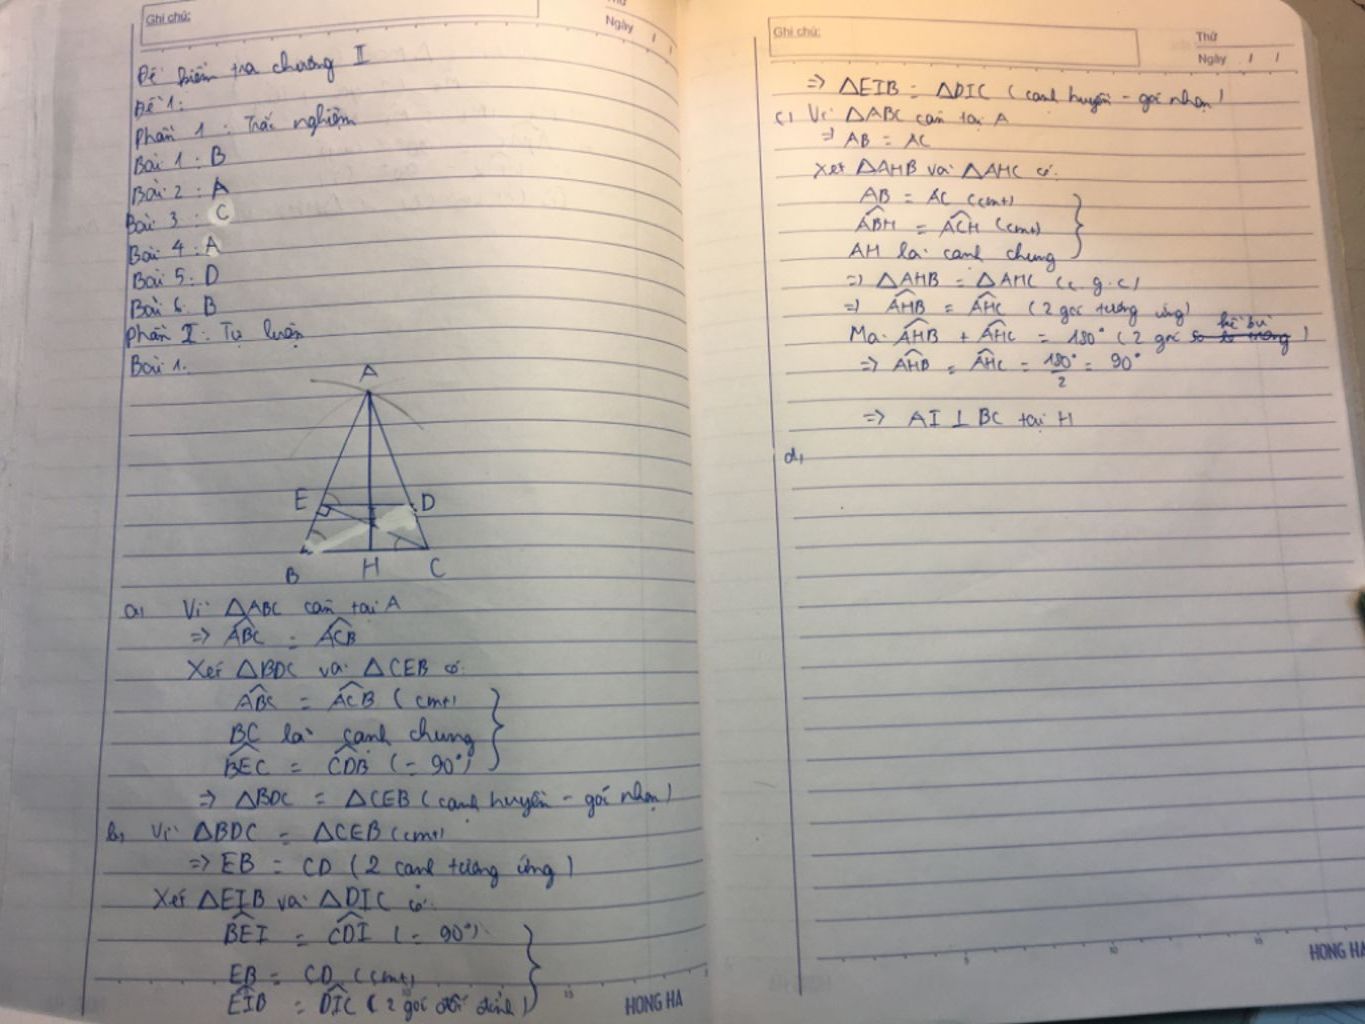 Ghi chú:
Thứ
Ngày / /
Đề kiểm tra chương II
Đề 1:
Phần 1 : Trắc nghiệm
Bài 1 : B
Bài 2 : A
Bài 3 : C
Bài 4 : A
Bài 5 : D
Bài 6 : B
Phần II : Tự luận
Bài 1.
A
E D
B H C
a, Vì ΔABC cân tại A
=> ABC = ACB
Xét ΔBDC và ΔCEB có:
ABC = ACB (cmt)
BC là cạnh chung
BEC = CDB (= 90°)
=> ΔBDC = ΔCEB (cạnh huyền - góc nhọn)
b, Vì ΔBDC = ΔCEB (cmt)
=> EB = CD (2 cạnh tương ứng)
Xét ΔEIB và ΔDIC có:
BEI = CDI (= 90°)
EB = CD (cmt)
EIB = DIC (2 góc đối đỉnh)
10 15
HONG HA
Ghi chú:
Thứ
Ngày / /
=> ΔEIB = ΔDIC (cạnh huyền - góc nhọn)
c, Vì ΔABC cân tại A
=> AB = AC
Xét ΔAHB và ΔAHC có:
AB = AC (cmt)
ABH = ACH (cmt)
AH là cạnh chung
=> ΔAHB = ΔAHC (c.g.c)
=> AHB = AHC (2 góc tương ứng)
Mà AHB + AHC = 180° (2 góc kề bù)
=> AHB = AHC = 180°/2 = 90°
=> AI ⊥ BC tại H
d,
5 10 15
HONG HA